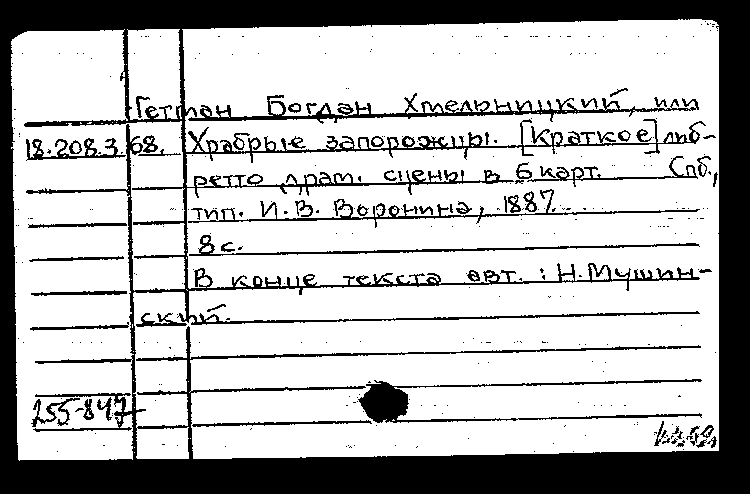 Гетман Богдан Хмельницкий, или
18.208.3.68. Храбрые запорожцы. [Краткое] либ-
ретто драм. сцены в 6 карт. Спб,
тип. И.В. Воронина, 1887.
8 с.
В конце текста авт.: Н.Мушин-
ский.
255-847